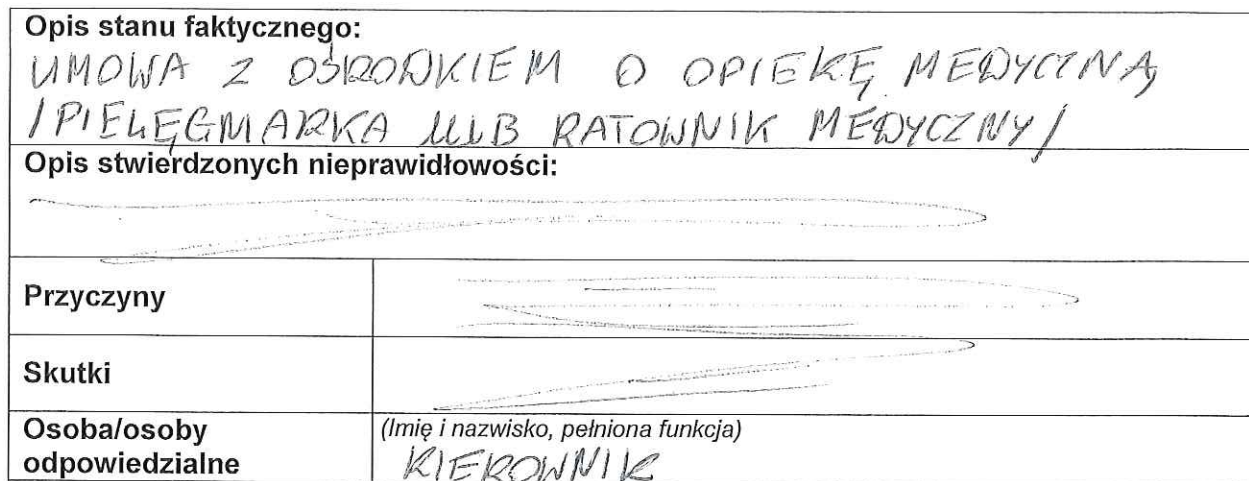 Opis stanu faktycznego:
UMOWA Z OŚRODKIEM O OPIEKĘ MEDYCZNĄ
/PIELĘGNIARKA LUB RATOWNIK MEDYCZNY/
Opis stwierdzonych nieprawidłowości:
Przyczyny
Skutki
Osoba/osoby odpowiedzialne
(Imię i nazwisko, pełniona funkcja)
KIEROWNIK